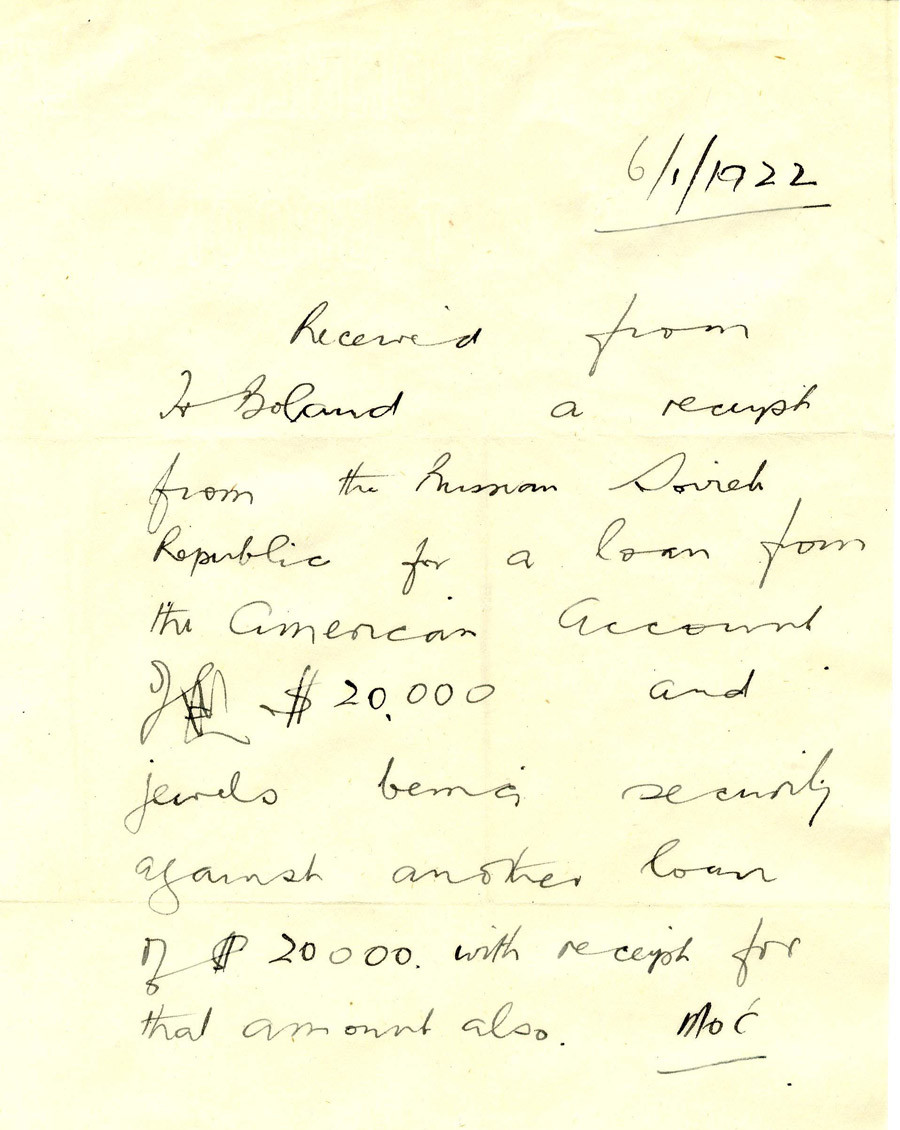 6/1/1922
Received from
H Boland a receipt
from the Russian Soviet
Republic for a loan from
the American Account
of $20,000 and
jewels being security
against another loan
of $20000. with receipt for
that amount also. MOC